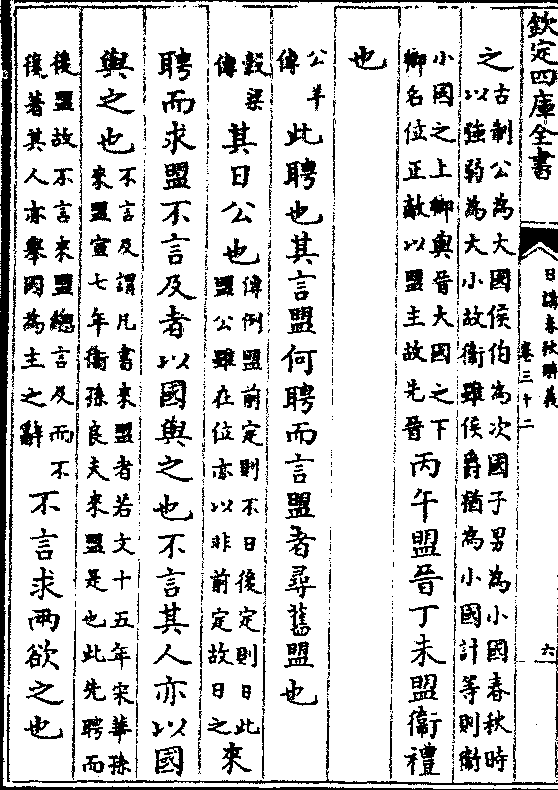 欽定四庫全書
日講春秋解義
卷三十二
六
之
古制公為大國侯伯為次國子男為小國春秋時
以強弱為大小故衛雖侯爵猶為小國計等則衛
小國之上卿與晉大國之下
卿名位正敵以盟主故先晉
丙午盟晉丁未盟衛禮
也
公羊
傳
此聘也其言盟何聘而言盟者尋舊盟也
穀梁
傳
其日公也
傳例盟前定則不日後定則日此
盟公雖在位亦以非前定故日之
來
聘而求盟不言及者以國與之也不言其人亦以國
與之也
不言及謂凡書來盟者若文十五年宋華孫
來盟宣七年衛孫良夫來盟是也此先聘而
後盟故不言來盟總言及而不
復著其人亦舉國為主之辭
不言求兩欲之也